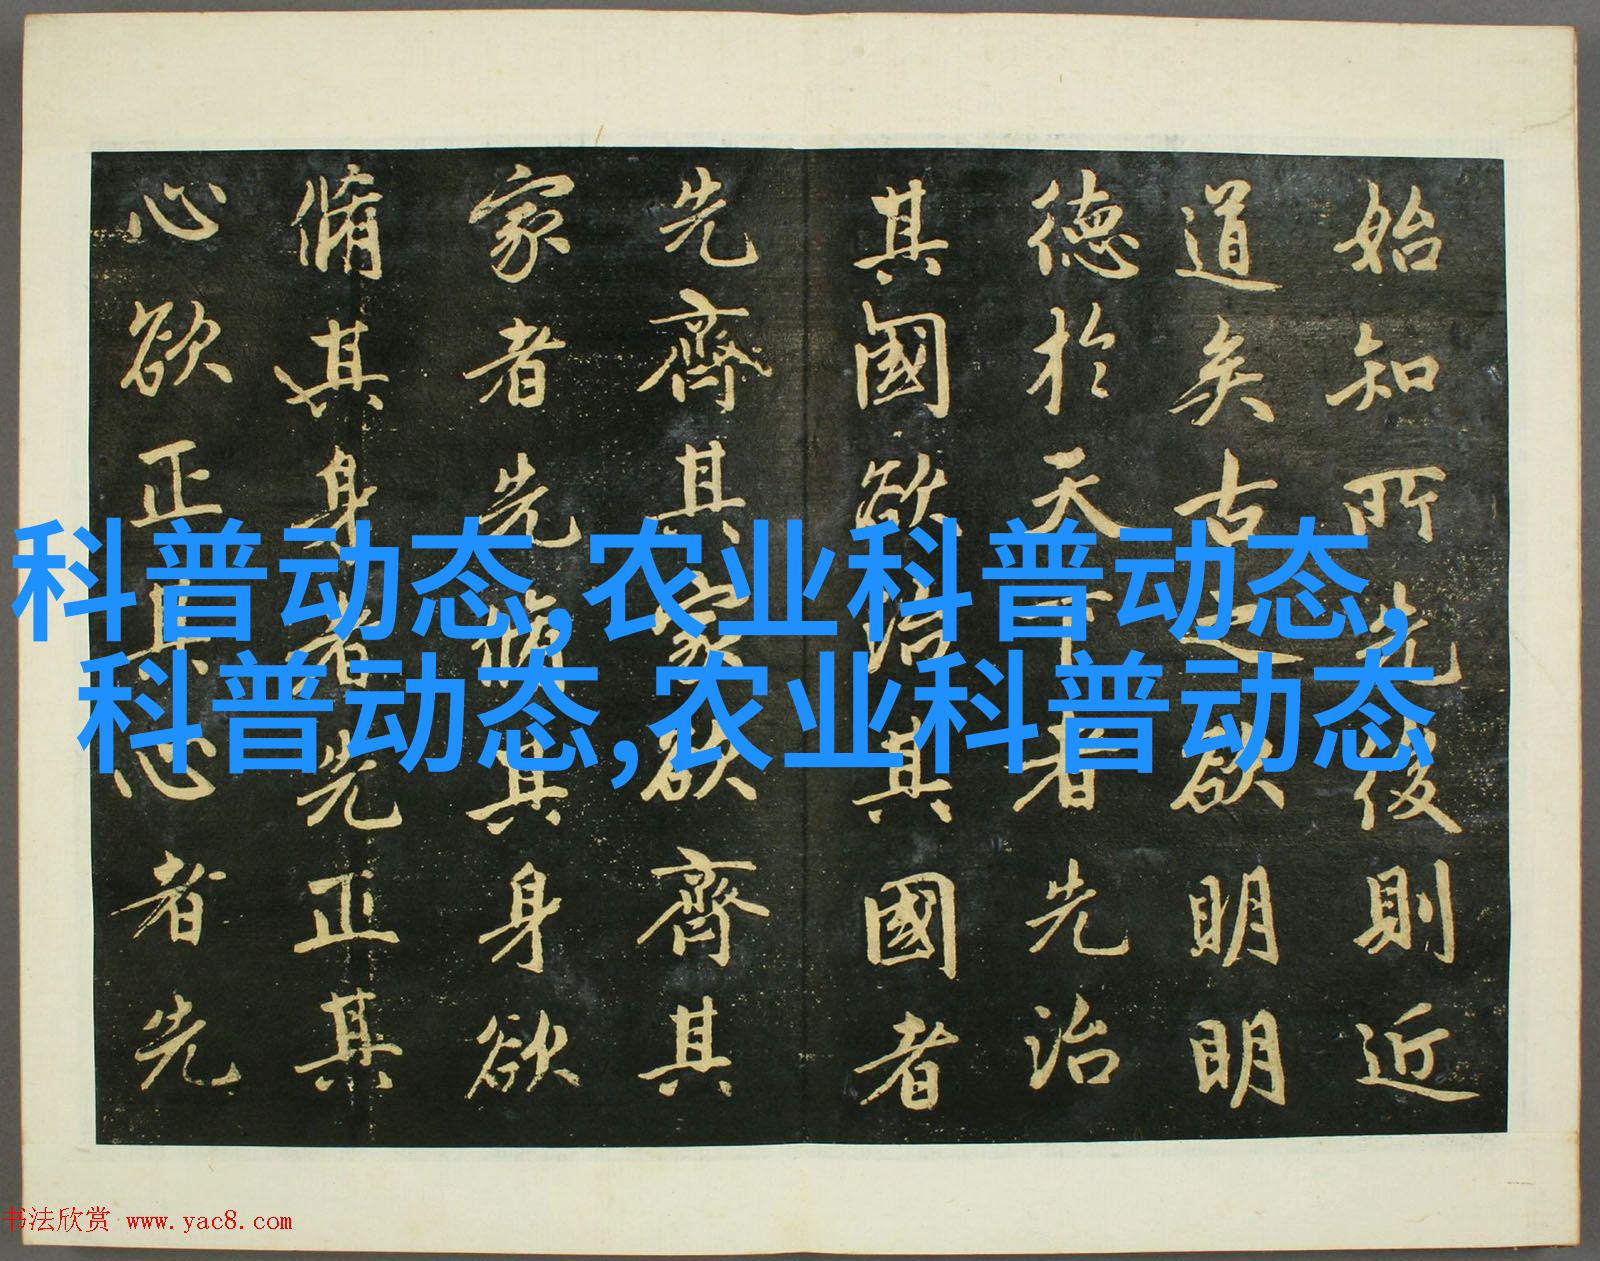 始知所先後則近
道矣古之欲明明
德於天下者先治
其國欲治其國者
先齊其家欲齊其
家者先脩其身欲
脩其身者先正其
心欲正其心者先
科普动态,农业科普动态,
科普动态,农业科普动态
书法欣赏 www.yac8.com